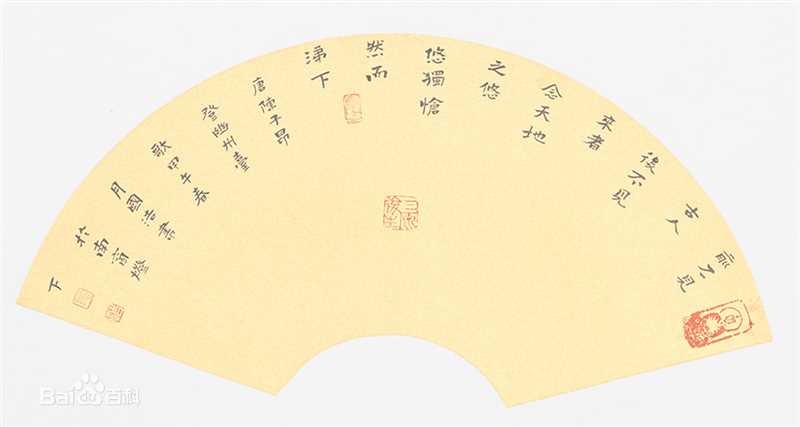 前不見
古人
後不見
來者
念天地
之悠
悠獨愴
然而
涕下
唐陳子昂
登幽州臺
歌甲午春
月國浩書
於南窗燈
下
Bai百科